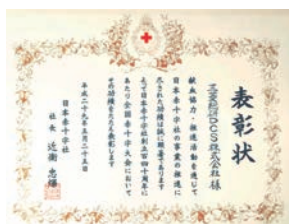 表彰状
三菱総研DCS株式会社様
献血協力・推進活動を通じて
日本赤十字社の事業の推進に
尽された功績は誠に顕著であります
よって日本赤十字社創立百四十周年に
あたり全国赤十字大会において
その功績をたたえ表彰します
平成二十九年五月二十五日
日本赤十字社
社長 近衞忠煇